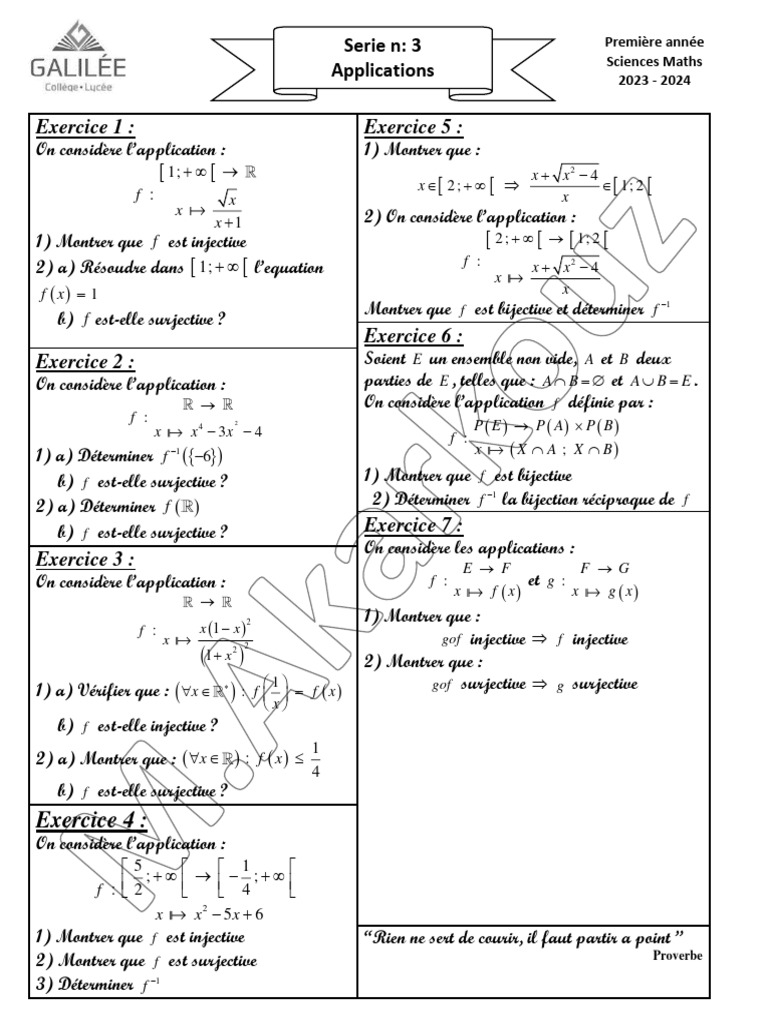 GALILÉE
Collège • Lycée
Serie n: 3
Applications
Première année
Sciences Maths
2023 - 2024
Exercice 1 :
On considère l'application :
f : [1;+∞[ → ℝ
x ↦ √x / (x+1)
1) Montrer que f est injective
2) a) Résoudre dans [1;+∞[ l'equation
f(x) = 1
b) f est-elle surjective ?
Exercice 2 :
On considère l'application :
f : ℝ → ℝ
x ↦ x⁴ − 3x² − 4
1) a) Déterminer f⁻¹({−6})
b) f est-elle surjective ?
2) a) Déterminer f(ℝ)
b) f est-elle surjective ?
Exercice 3 :
On considère l'application :
f : ℝ → ℝ
x ↦ x(1−x)² / (1+x²)²
1) a) Vérifier que : (∀x∈ℝ*) : f(1/x) = f(x)
b) f est-elle injective ?
2) a) Montrer que : (∀x∈ℝ) : f(x) ≤ 1/4
b) f est-elle surjective ?
Exercice 4 :
On considère l'application :
f : [5/2;+∞[ → [−1/4;+∞[
x ↦ x² − 5x + 6
1) Montrer que f est injective
2) Montrer que f est surjective
3) Déterminer f⁻¹
Exercice 5 :
1) Montrer que :
x∈[2;+∞[ ⇒ (x+√(x²−4))/x ∈[1;2[
2) On considère l'application :
f : [2;+∞[ → [1;2[
x ↦ (x+√(x²−4))/x
Montrer que f est bijective et déterminer f⁻¹
Exercice 6 :
Soient E un ensemble non vide, A et B deux
parties de E, telles que : A∩B=∅ et A∪B=E.
On considère l'application f définie par :
f : P(E) → P(A)×P(B)
x ↦ (X∩A ; X∩B)
1) Montrer que f est bijective
2) Déterminer f⁻¹ la bijection réciproque de f
Exercice 7 :
On considère les applications :
f : E → F et g : F → G
x ↦ f(x) x ↦ g(x)
1) Montrer que :
gof injective ⇒ f injective
2) Montrer que :
gof surjective ⇒ g surjective
“Rien ne sert de courir, il faut partir a point ”
Proverbe
M.Akarkouz